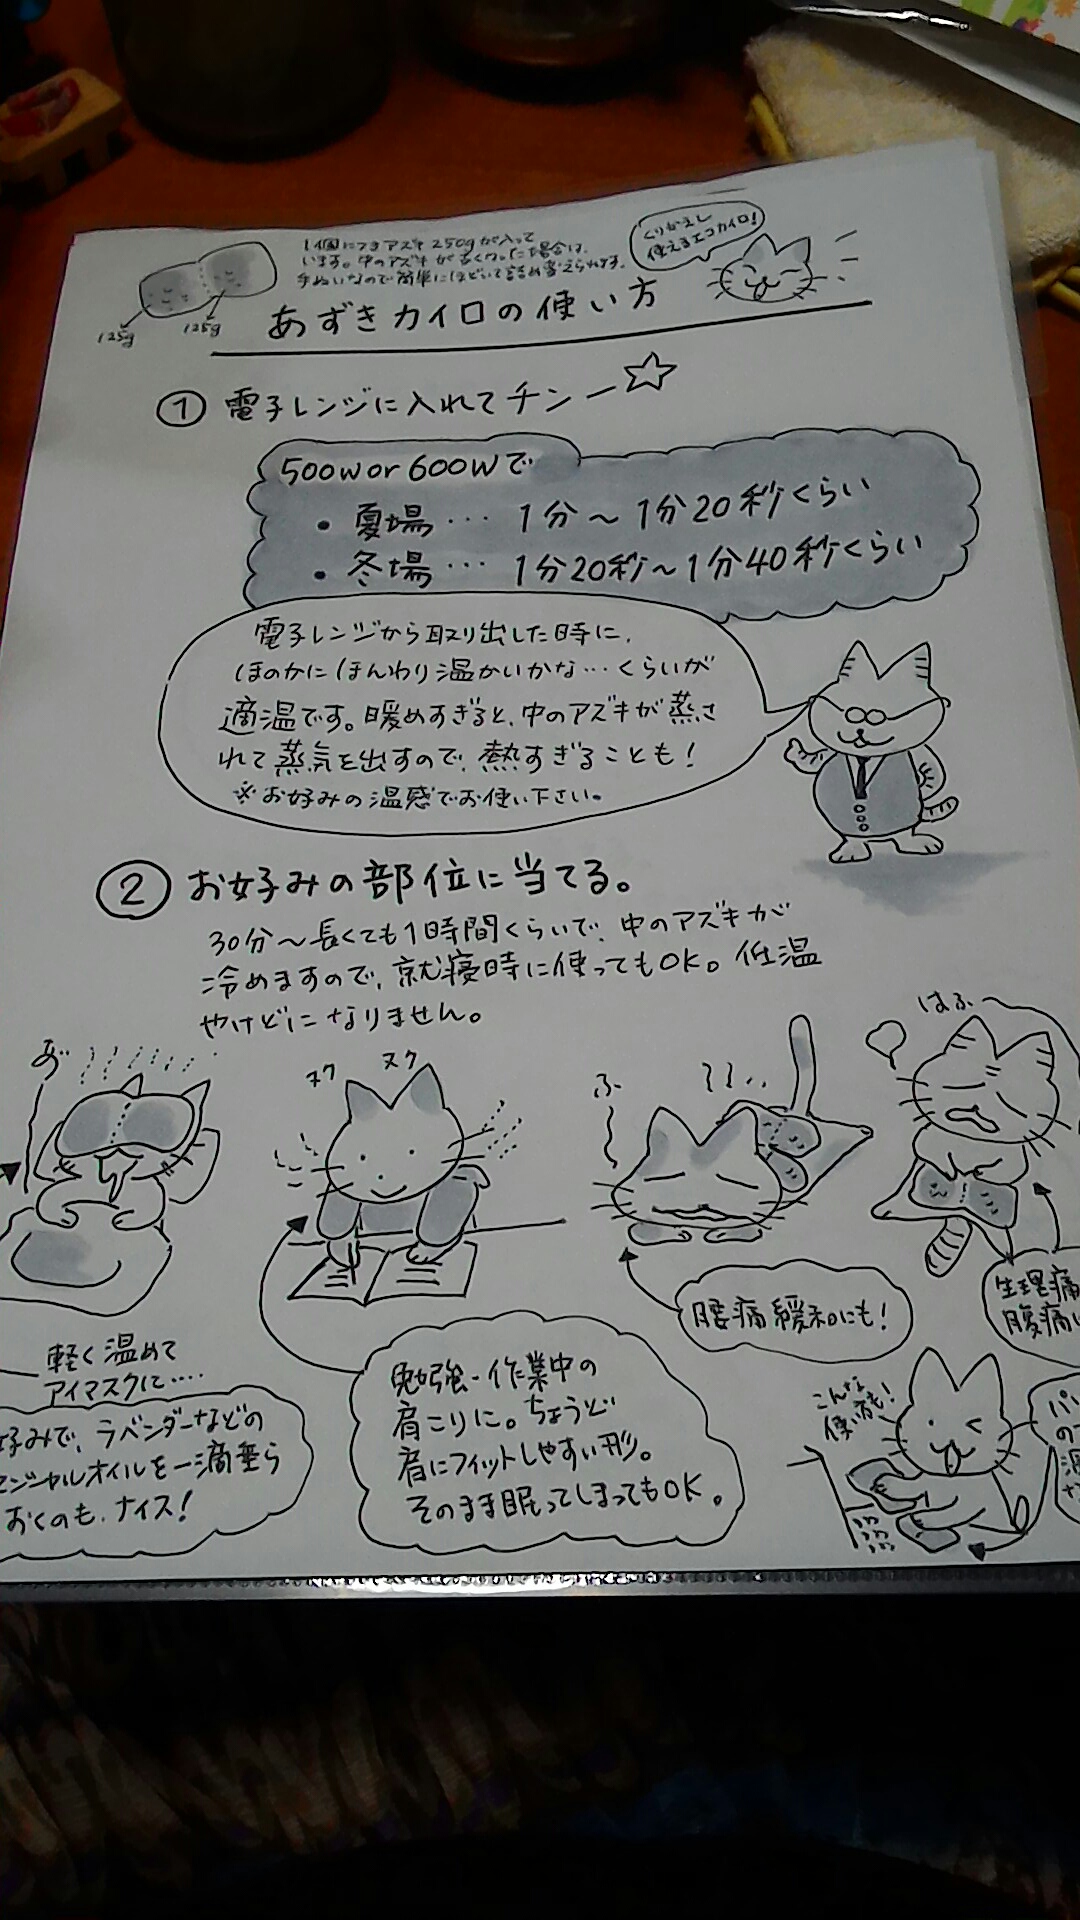 1個につきアズキ250gが入って
います。中のアズキが古くなった場合は、
手ぬいなので簡単にほどいて詰め替えられます。
くりかえし
使えるエコカイロ!
125g
125g
あずきカイロの使い方
① 電子レンジに入れてチンー☆
500w or 600wで
・夏場… 1分〜1分20秒くらい
・冬場… 1分20秒〜1分40秒くらい
電子レンジから取り出した時に、
ほのかにほんわり温かいかな…くらいが
適温です。暖めすぎると、中のアズキが蒸さ
れて蒸気を出すので、熱すぎることも!
※お好みの温感でお使い下さい。
② お好みの部位に当てる。
30分〜長くても1時間くらいで、中のアズキが
冷めますので、就寝時に使ってもOK。低温
やけどになりません。
ヌク ヌク
ふ
はふ
軽く温めて
アイマスクに‥‥
好みで、ラベンダーなどの
センシャルオイルを一滴垂ら
おくのも、ナイス!
勉強・作業中の
肩こりに。ちょうど
肩にフィットしやすい形。
そのまま眠ってしまってもOK。
腰痛緩和にも!
生理痛
腹痛
こんな
使い方も!
パソ
の
温